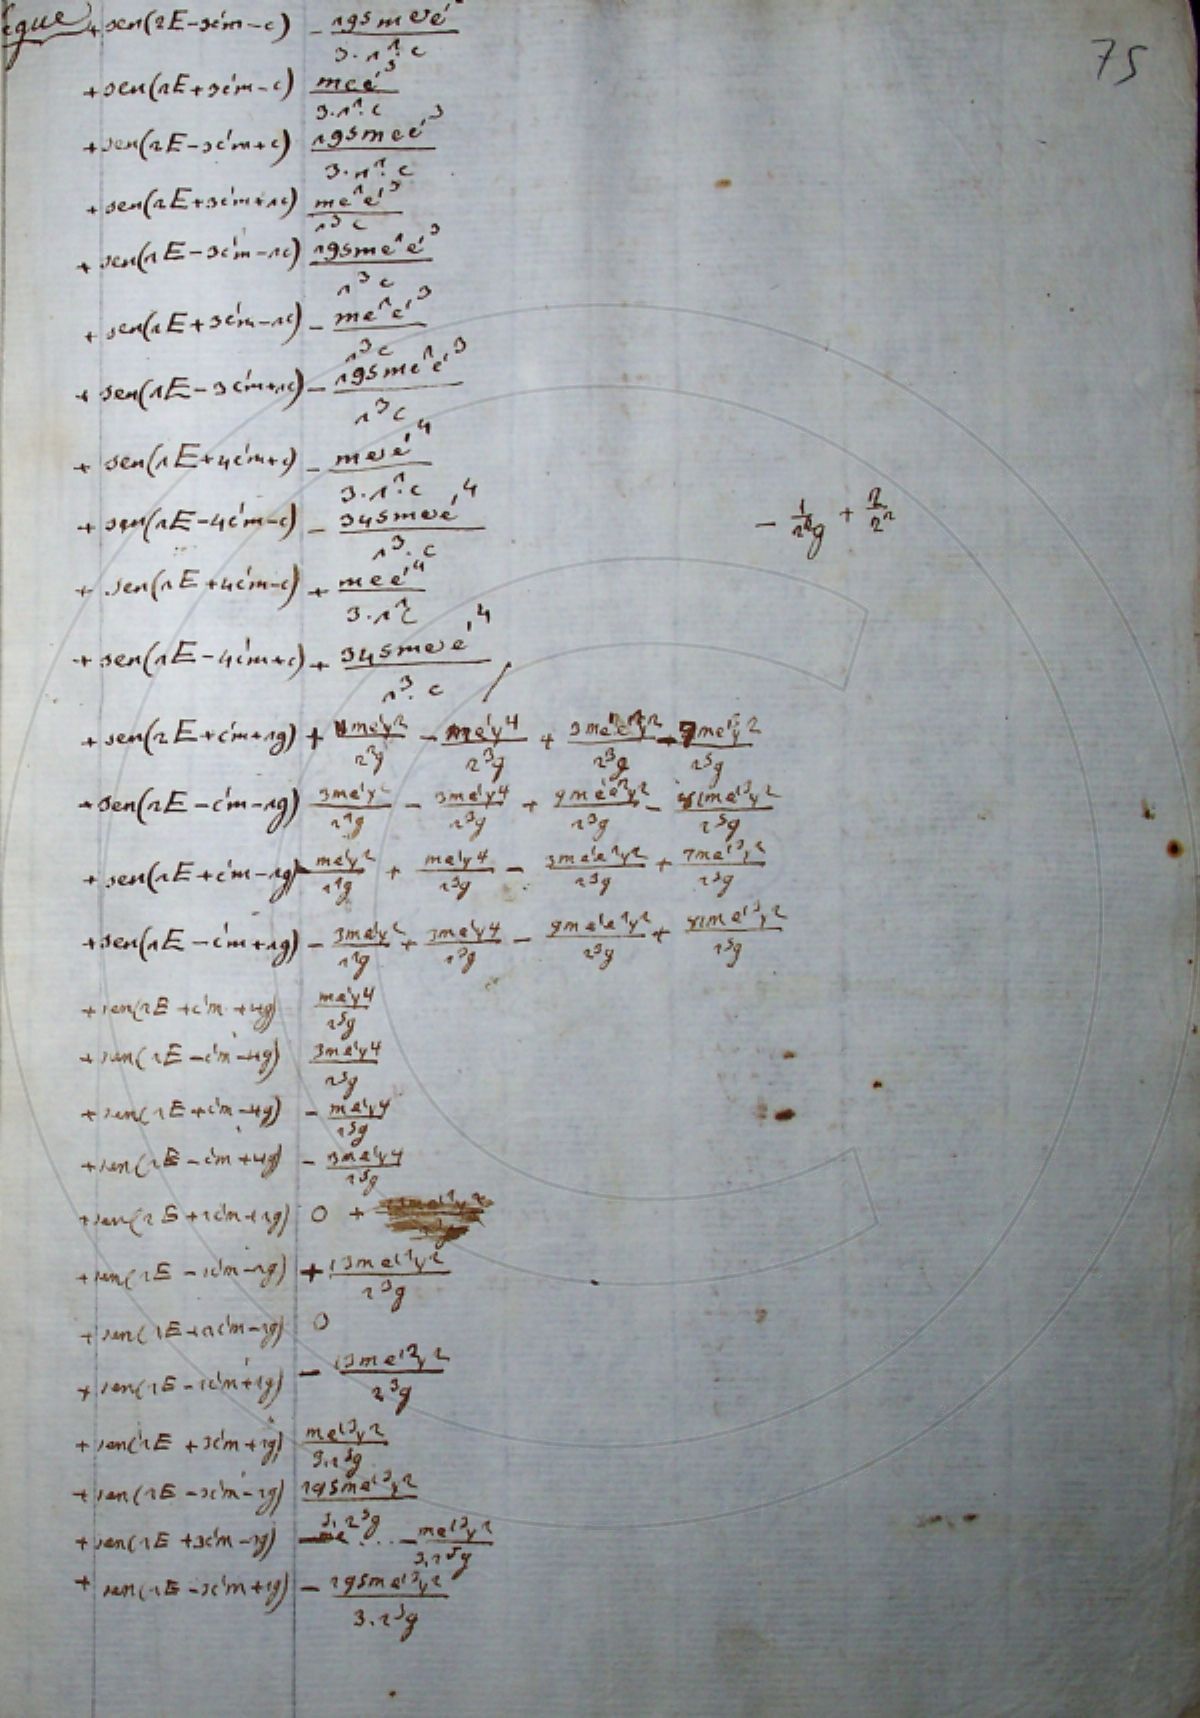 segue
75
+ sen(2E-3c'm-c) - 195mee'³/3.2².c
+ sen(2E+3c'm-c) mee'³/3.2².c
+ sen(2E-3c'm+c) 195mee'³/3.2².c
+ sen(2E+3c'm+2c) me²e'³/2³c
+ sen(2E-3c'm-2c) 195me²e'³/2³c
+ sen(2E+3c'm-2c) - me²e'³/2³c
+ sen(2E-3c'm+2c) - 195me²e'³/2³c
+ sen(2E+4c'm+c) - mee'⁴/3.2².c
+ sen(2E-4c'm-c) - 345mee'⁴/2³.c
+ sen(2E+4c'm-c) + mee'⁴/3.2²c
+ sen(2E-4c'm+c) + 345mee'⁴/2³.c
- 1/2²g + 2/2²
+ sen(2E+c'm+2g) + me'γ²/2²g - me'γ⁴/2³g + 3me'e²γ²/2³g - 7me'³γ²/2⁵g
+ sen(2E-c'm-2g) 3me'γ²/2²g - 3me'γ⁴/2³g + 9me'e²γ²/2³g - 81me'³γ²/2⁵g
+ sen(2E+c'm-2g) - me'γ²/2²g + me'γ⁴/2³g - 3me'e²γ²/2³g + 7me'³γ²/2⁵g
+ sen(2E-c'm+2g) - 3me'γ²/2²g + 3me'γ⁴/2³g - 9me'e²γ²/2³g + 81me'³γ²/2⁵g
+ sen(2E+c'm+4g) me'γ⁴/2⁵g
+ sen(2E-c'm-4g) 3me'γ⁴/2⁵g
+ sen(2E+c'm-4g) - me'γ⁴/2⁵g
+ sen(2E-c'm+4g) - 3me'γ⁴/2⁵g
+ sen(2E+2c'm+2g) 0 +
+ sen(2E-2c'm-2g) + 13me'²γ²/2³g
+ sen(2E+2c'm-2g) 0
+ sen(2E-2c'm+2g) - 13me'²γ²/2³g
+ sen(2E+3c'm+2g) me'³γ²/3.2⁵g
+ sen(2E-3c'm-2g) 195me'³γ²/3.2⁵g
+ sen(2E+3c'm-2g) ... - me'³γ²/3.2⁵g
+ sen(2E-3c'm+2g) - 195me'³γ²/3.2⁵g